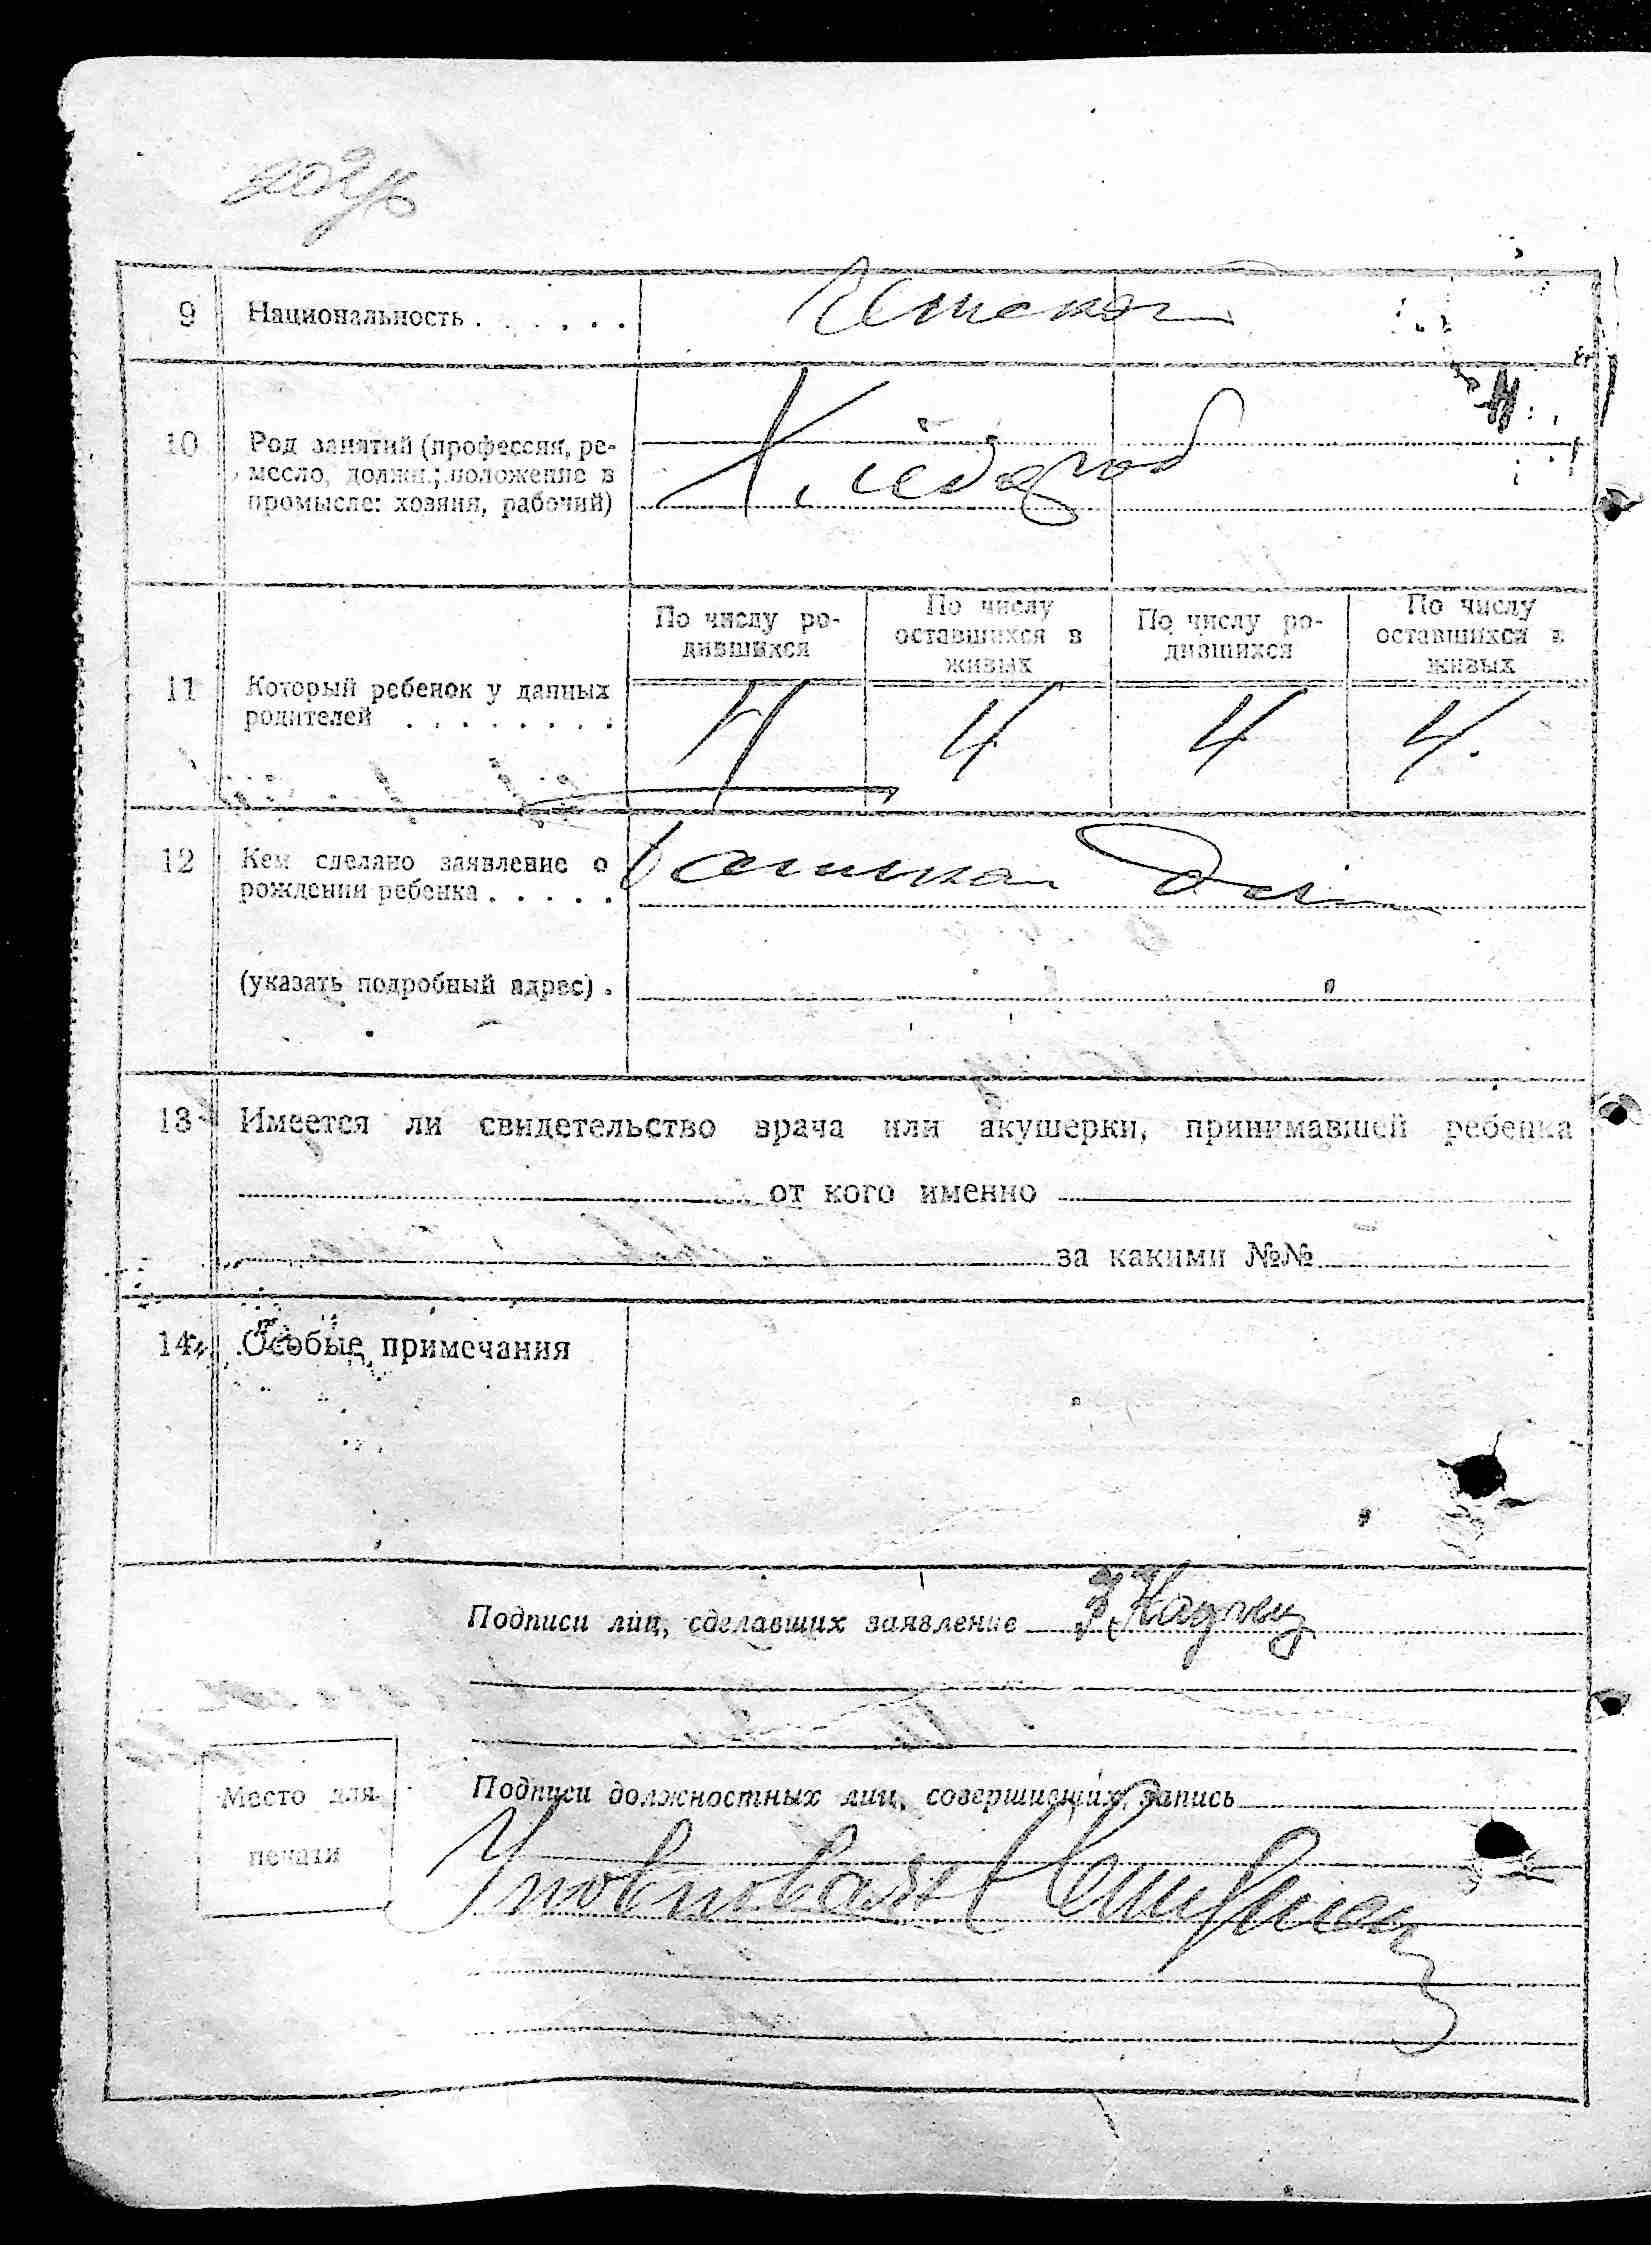 9 Национальность . . . . . .
10 Род занятий (профессия, ре-
месло, должн.; положение в
промысле: хозяин, рабочий)
Хлебороб
По числу ро-
дившихся
По числу
оставшихся в
живых
По числу ро-
дившихся
По числу
оставшихся в
живых
11 Который ребенок у данных
родителей . . . . . . . .
4 4 4 4.
12 Кем сделано заявление о
рождении ребенка . . . . .
(указать подробный адрес) .
13 Имеется ли свидетельство врача или акушерки, принимавшей ребенка
от кого именно
за какими №№
14 Особые примечания
Подписи лиц, сделавших заявление
Место для
печати
Подписи должностных лиц, совершивших запись